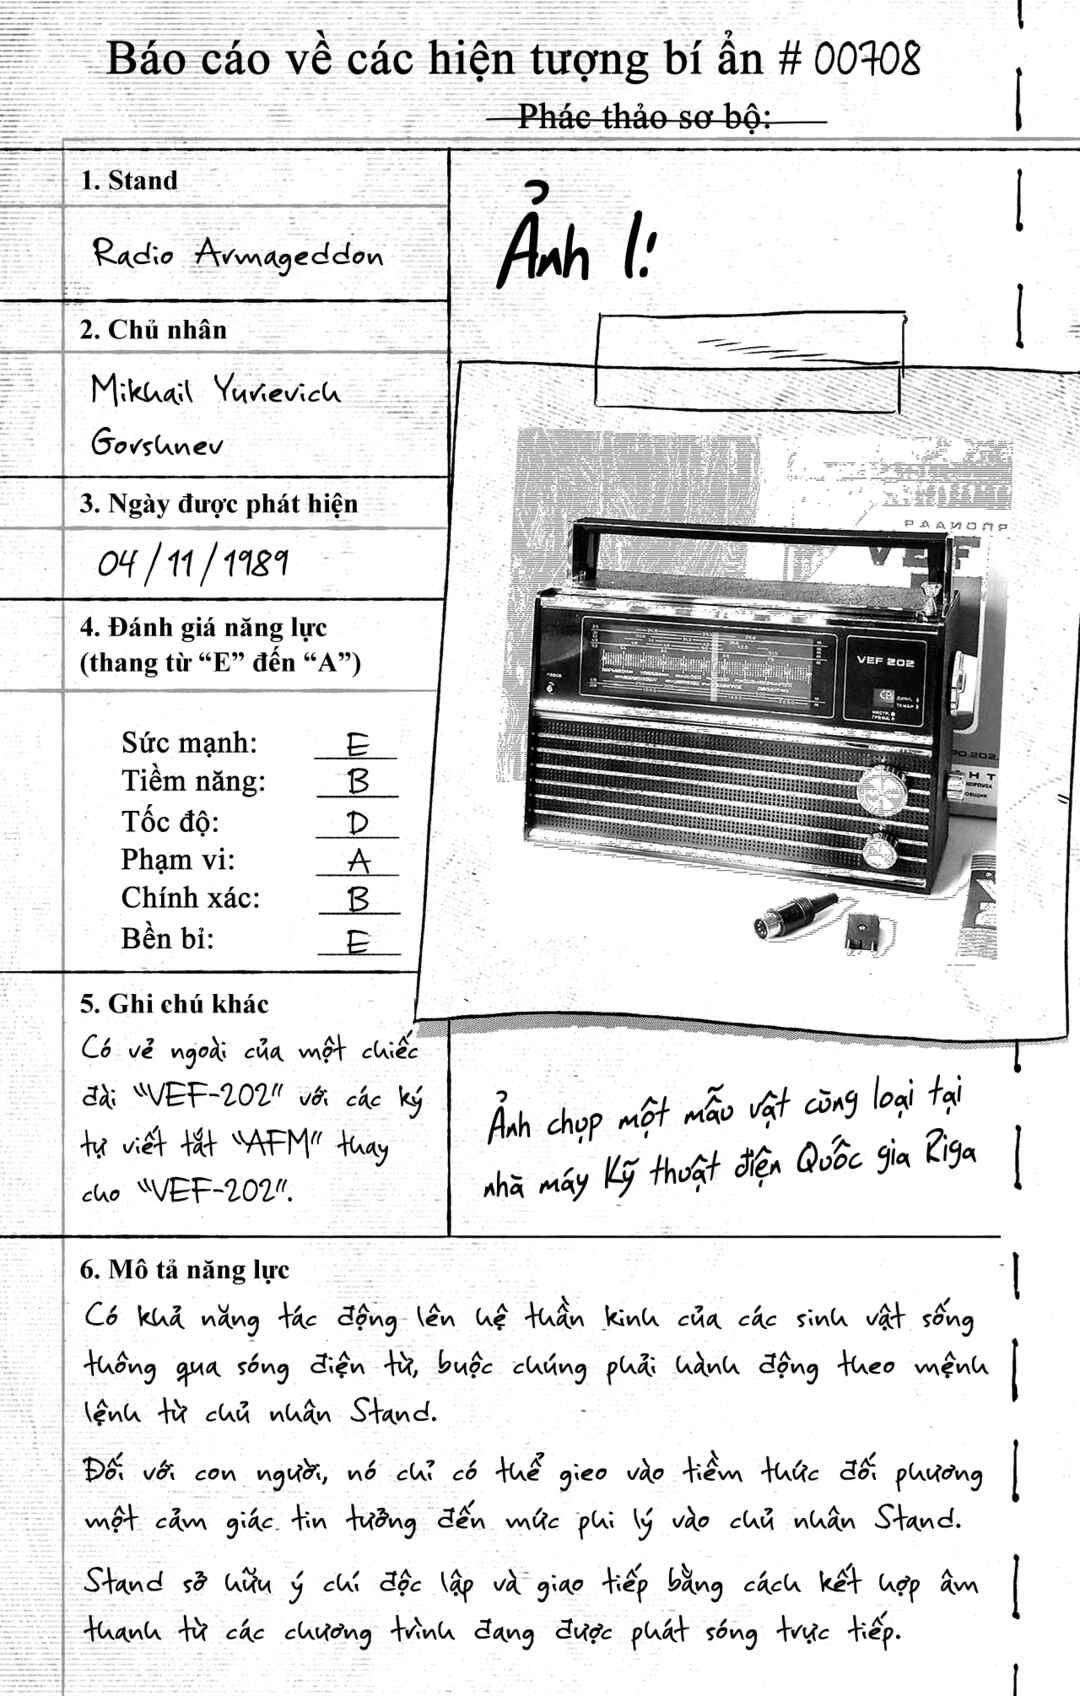 Báo cáo về các hiện tượng bí ẩn # 00708
Phác thảo sơ bộ:
1. Stand
Radio Armageddon
2. Chủ nhân
Mikhail Yurievich
Gorshnev
3. Ngày được phát hiện
04/11/1989
4. Đánh giá năng lực
(thang từ “E” đến “A”)
Sức mạnh: E
Tiềm năng: B
Tốc độ: D
Phạm vi: A
Chính xác: B
Bền bỉ: E
5. Ghi chú khác
Có vẻ ngoài của một chiếc
đài "VEF-202" với các ký
tự viết tắt "AFM" thay
cho "VEF-202".
Ảnh 1:
VEF
VEF 202
Ảnh chụp một mẫu vật cùng loại tại
nhà máy Kỹ thuật điện Quốc gia Riga
6. Mô tả năng lực
Có khả năng tác động lên hệ thần kinh của các sinh vật sống
thông qua sóng điện từ, buộc chúng phải hành động theo mệnh
lệnh từ chủ nhân Stand.
Đối với con người, nó chỉ có thể gieo vào tiềm thức đối phương
một cảm giác tin tưởng đến mức phi lý vào chủ nhân Stand.
Stand sở hữu ý chí độc lập và giao tiếp bằng cách kết hợp âm
thanh từ các chương trình đang được phát sóng trực tiếp.